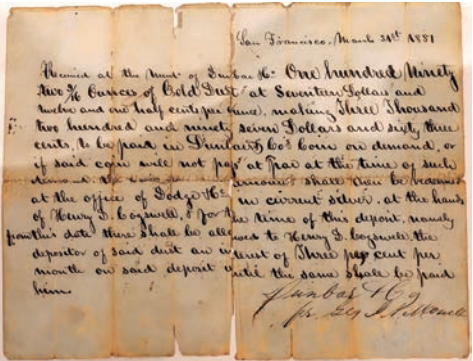 San Francisco, March 21st 1851
Received at the Mint of Dunbar & Co. One hundred Ninety
two 9/16 Ounces of Gold Dust at Seventeen Dollars and
twelve and one half cents per ounce, making Three Thousand
two hundred and ninety seven Dollars and sixty three
cents, to be paid in Dunbar & Co's Coin on demand, or
if said coin will not pass at Par at the time of such
shall then be redeemed
at the office of Dodge & Co. in current silver, at the hands
of Henry D. Cogswell, & for the time of this deposit, namely
from this date there shall be allowed to Henry D. Cogswell the
depositor of said dust an interest of Three per cent per
month on said deposit until the same shall be paid
him
Dunbar & Co
pr.